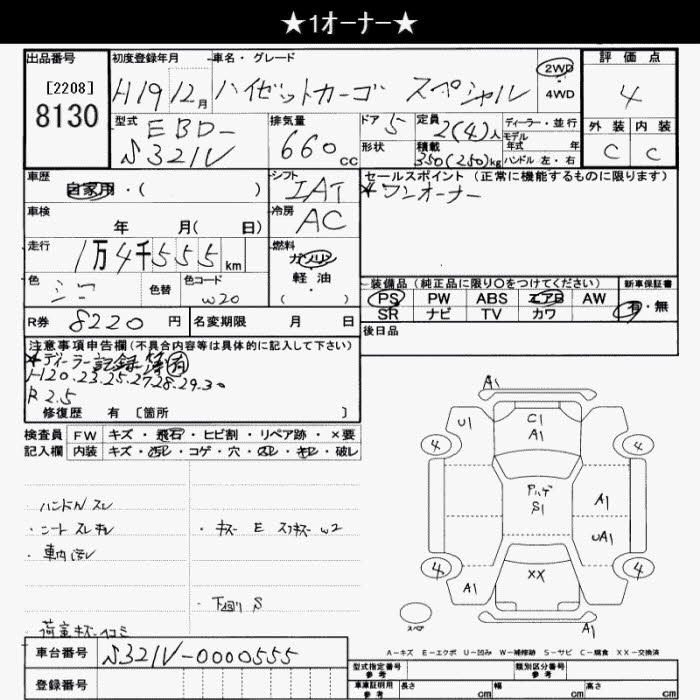 ★1オーナー★
出品番号
[2208]
8130
初度登録年月
H19 12月
車名・グレード
ハイゼットカーゴ スペシャル
2WD
・
4WD
評価点
4
型式
EBD-
S321V
排気量
660 cc
ドア 5
形状
定員 2(4)人
積載 350(250)kg
ディーラー・並行
モデル
年式 年
ハンドル 左・右
外装 内装
C C
車歴
自家用・( )
シフト
IAT
セールスポイント (正常に機能するものに限ります)
★ワンオーナー
車検
年 月( 日)
冷房
AC
走行
1万4千555km
燃料
ガソリン
軽油
( ・ )
色
シロ
色替
色コード
W20
装備品 (純正品に限り○をつけてください)
新車保証書
PS PW ABS エアB AW
有・無
SR ナビ TV カワ
R券 8220 円
名変期限 月 日
後日品
注意事項申告欄(不具合内容等は具体的に記入して下さい)
★ディーラー記録簿(有)
H20.23.25.27.28.29.30
R2.5
修復歴 有 〔箇所 〕
検査員 FW キズ・飛石・ヒビ割・リペア跡・×要
記入欄 内装 キズ・汚レ・コゲ・穴・スレ・キレ・破レ
ハンドルスレ
・シートスレキレ
・車内汚レ
・キズ E スリキズ W2
・下回り S
荷室キズ・凹ミ
A1
U1
C1
A1
4
4
ルーフ
S1
A1
UA1
4
4
XX
A1
スペア
A1
A−キズ E−エクボ U−凹み W−補修跡 S−サビ C−腐食 XX−交換済
車台番号 S321V-0000555
登録番号
型式指定番号
参考
類別区分番号
参考
車庫証明用
参考
長さ cm
幅 cm
高さ cm